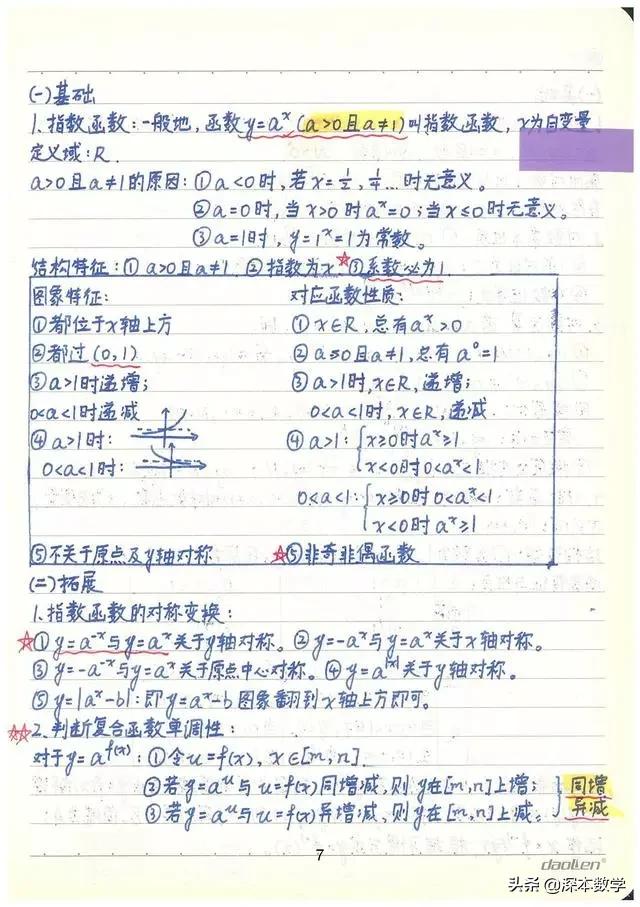 (一)基础
1.指数函数:一般地,函数y=aˣ(a>0且a≠1)叫指数函数,x为自变量,
定义域:R.
a>0且a≠1的原因:①a<0时,若x=1/2,1/4…时无意义。
②a=0时,当x>0时aˣ=0;当x≤0时无意义。
③a=1时,y=1ˣ=1为常数。
结构特征:①a>0且a≠1.②指数为x.☆③系数必为1.
图象特征: 对应函数性质:
①都位于x轴上方 ①x∈R,总有aˣ>0
②都过(0,1) ②a>0且a≠1,总有a⁰=1
③a>1时递增; ③a>1时,x∈R,递增;
0<a<1时递减 0<a<1时,x∈R,递减
④a>1时: ④a>1:{x≥0时aˣ≥1.
0<a<1时: x<0时0<aˣ<1
0<a<1:{x≥0时0<aˣ<1
x<0时aˣ≥1
⑤不关于原点及y轴对称 ☆⑤非奇非偶函数
(二)拓展
1.指数函数的对称变换:
☆①y=a⁻ˣ与y=aˣ关于y轴对称。②y=-aˣ与y=aˣ关于x轴对称。
③y=-a⁻ˣ与y=aˣ关于原点中心对称。④y=a^|x|关于y轴对称。
⑤y=|aˣ-b|:即y=aˣ-b图象翻到x轴上方即可。
☆☆2.判断复合函数单调性:
对于y=a^f(x):①令u=f(x),x∈[m,n].
②若y=aᵘ与u=f(x)同增减,则y在[m,n]上增; 同增
③若y=aᵘ与u=f(x)异增减,则y在[m,n]上减。 异减
7
daolen
头条@深本数学